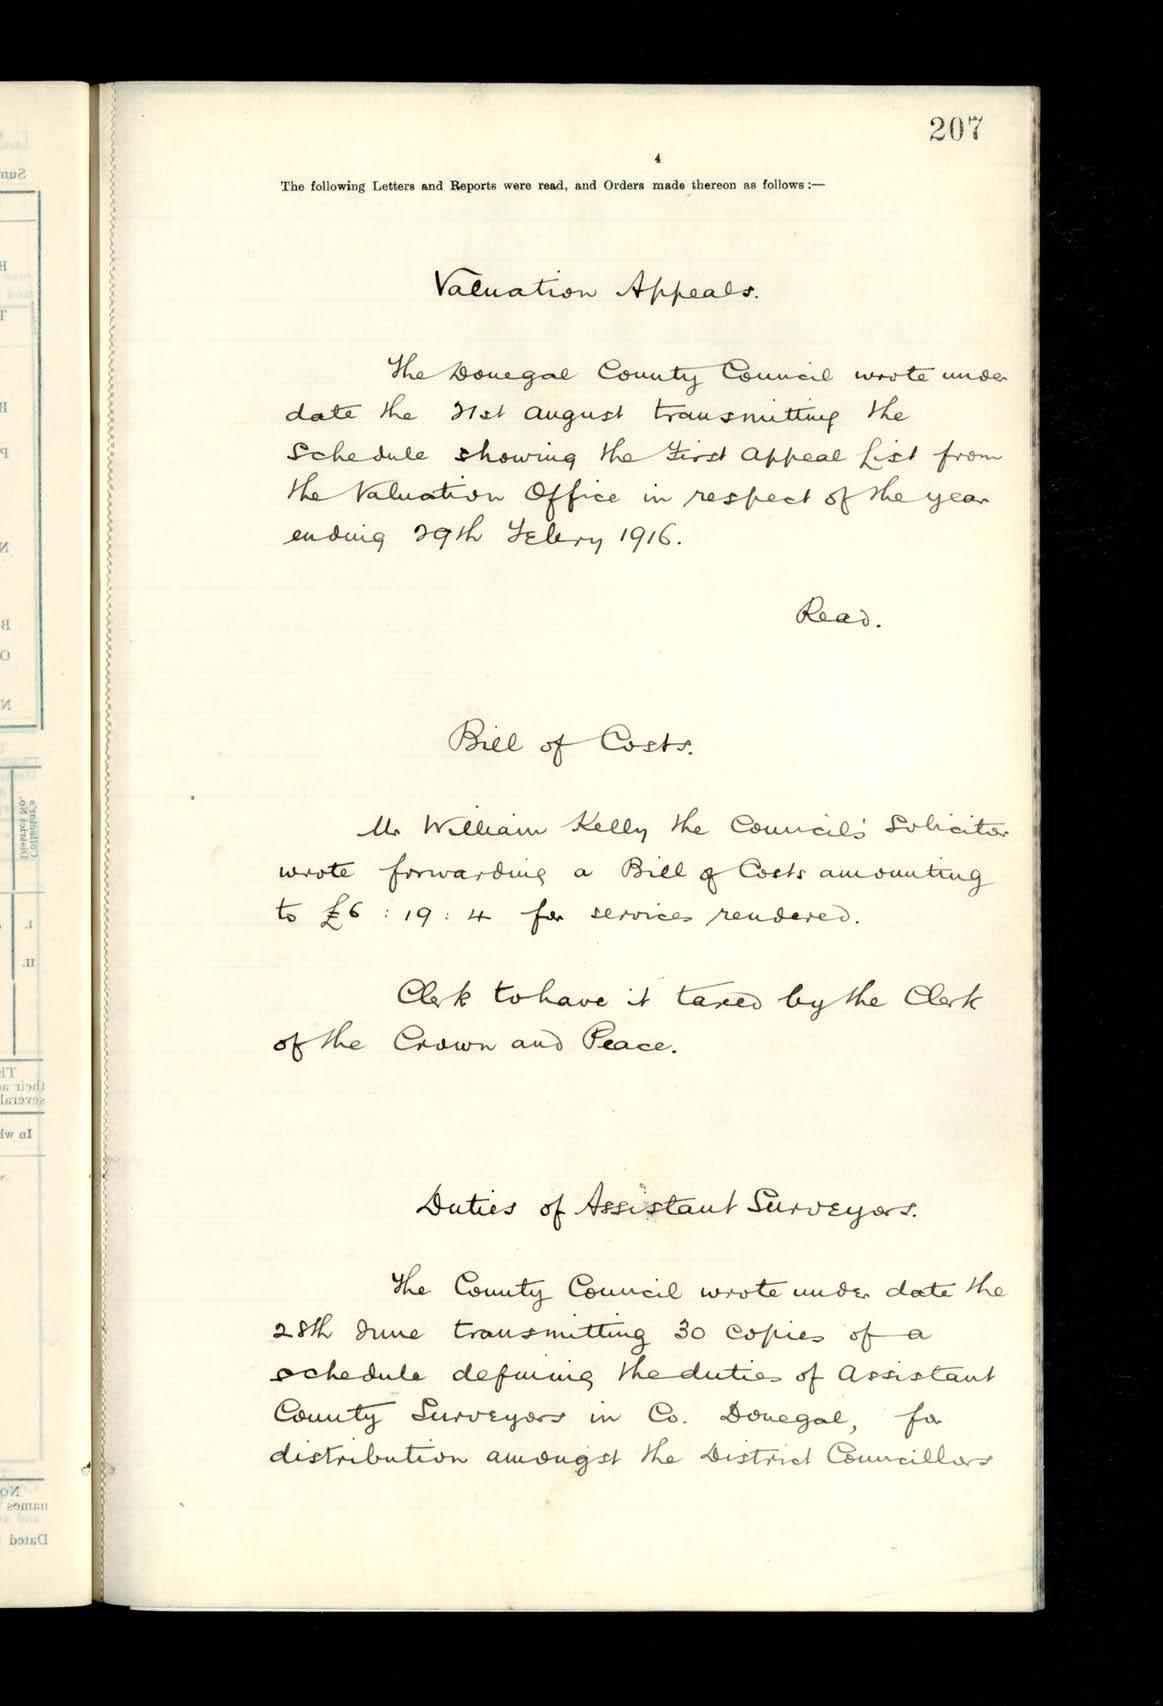 207
4
The following Letters and Reports were read, and Orders made thereon as follows :—
Valuation Appeals.
The Donegal County Council wrote under
date the 21st August transmitting the
Schedule showing the First Appeal List from
the Valuation Office in respect of the year
ending 29th Febry 1916.
Read.
Bill of Costs.
Mr William Kelly the Council's Solicitor
wrote forwarding a Bill of Costs amounting
to £6 : 19 : 4 for services rendered.
Clerk to have it taxed by the Clerk
of the Crown and Peace.
Duties of Assistant Surveyors.
The County Council wrote under date the
28th June transmitting 30 copies of a
schedule defining the duties of Assistant
County Surveyors in Co. Donegal, for
distribution amongst the District Councillors